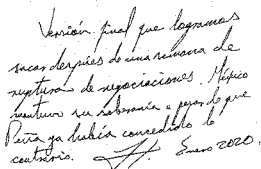 Versión final que logramos
sacar después de una semana de
ruptura de negociaciones. México
mantuvo su soberanía a pesar de que
Peña ya había concedido lo
contrario. Enero 2020.